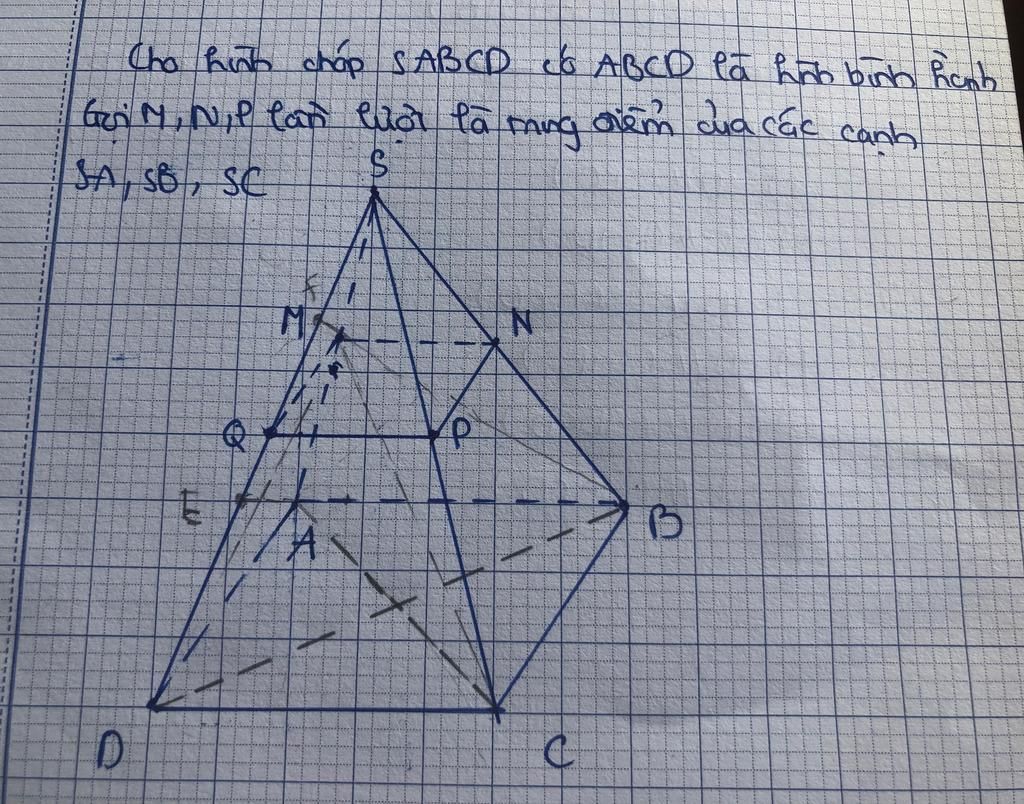 Cho hình chóp SABCD có ABCD là hình bình hành
Gọi M, N, P lần lượt là trung điểm của các cạnh
SA, SB, SC
S
F
M
N
Q
P
E
A
B
D
C